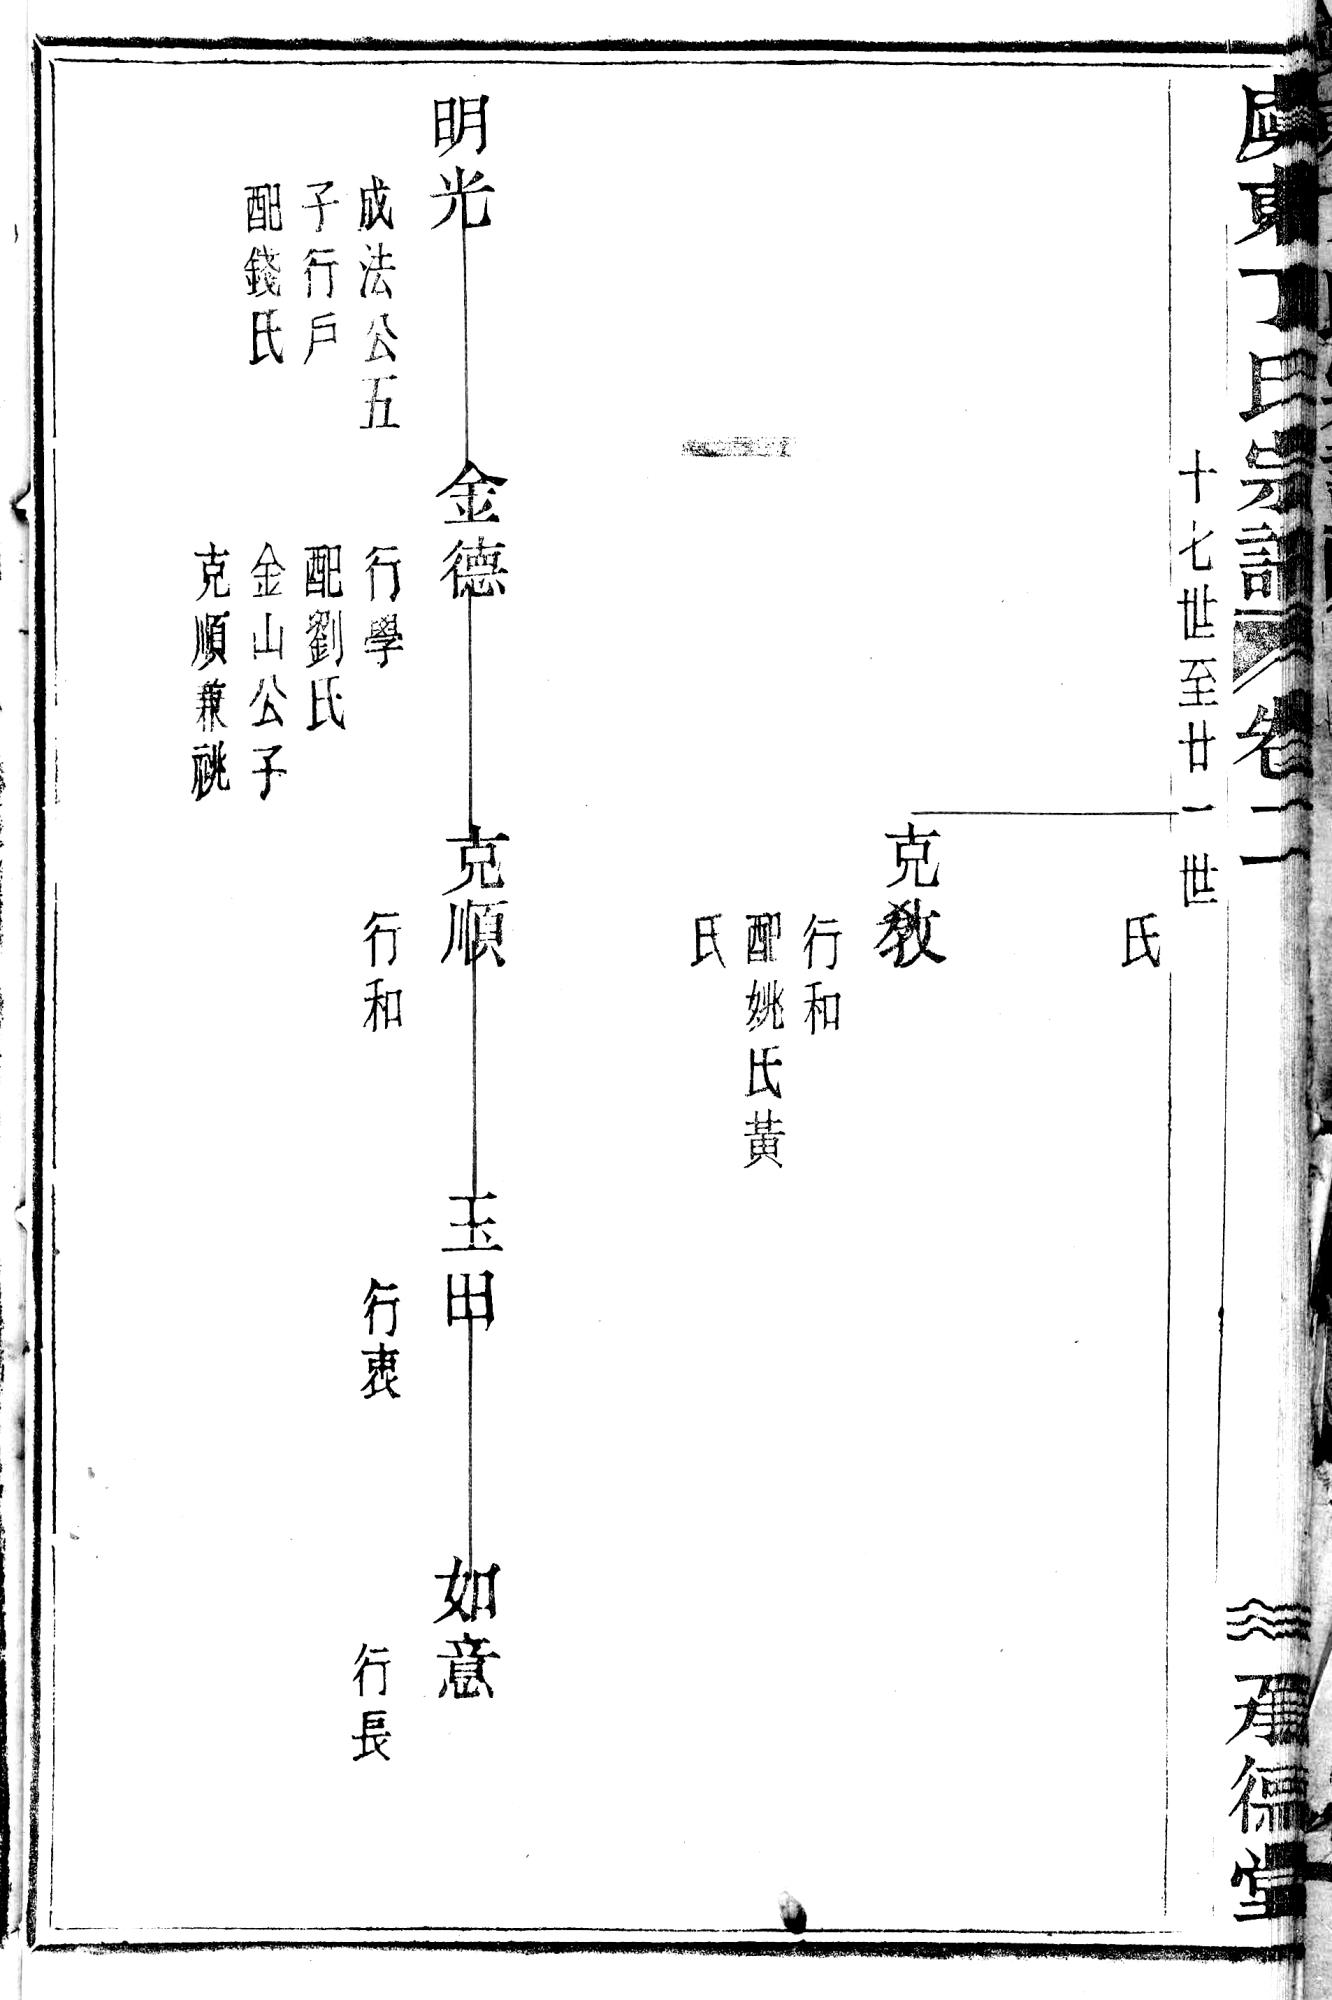 東丁氏宗譜 卷二 承德堂
十七世至廿一世
氏
克敎
行和
配姚氏黃
氏
明光
成法公五
子行戶
配錢氏
金德
行學
配劉氏
金山公子
克順兼祧
克順
行和
玉田
行衷
如意
行長